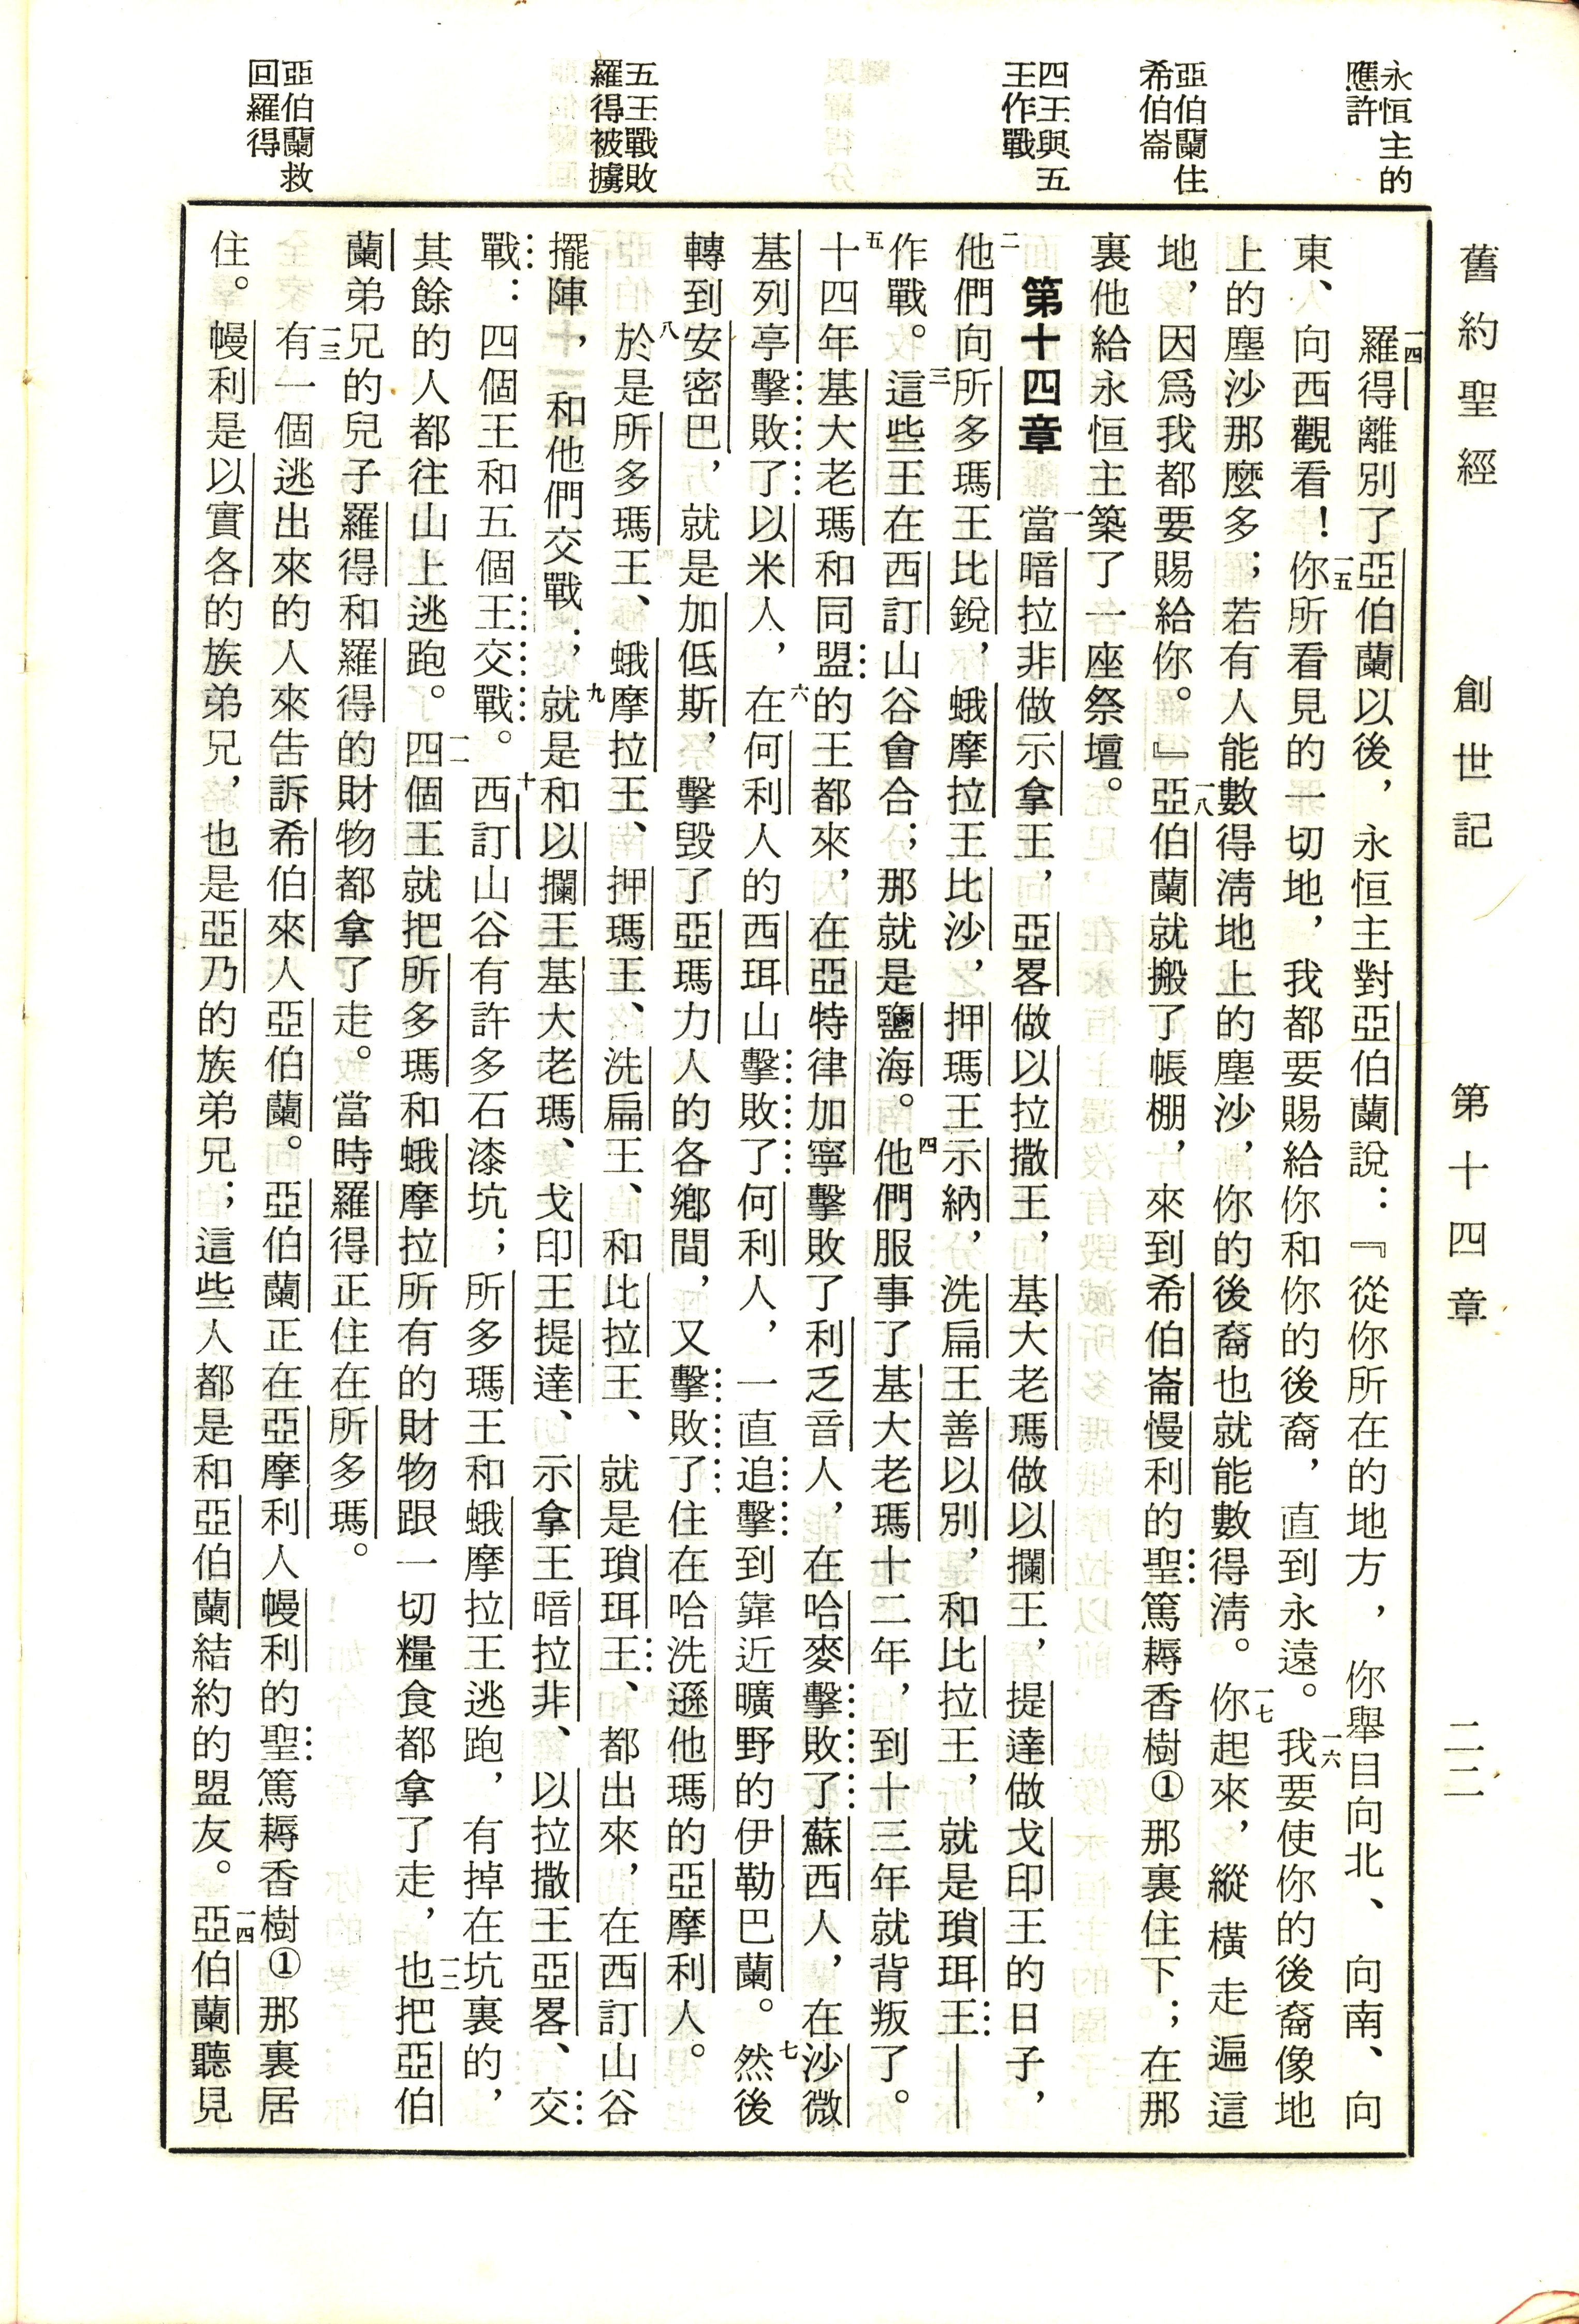 舊約聖經　創世記　第十四章　二二
永恒主的
應許
亞伯蘭住
希伯崙
四王與五
王作戰
五王戰敗
羅得被擄
亞伯蘭救
回羅得
一四羅得離別了亞伯蘭以後，永恒主對亞伯蘭說：『從你所在的地方，你舉目向北、向南、向
東、向西觀看！一五你所看見的一切地，我都要賜給你和你的後裔，直到永遠。一六我要使你的後裔像地
上的塵沙那麼多；若有人能數得淸地上的塵沙，你的後裔也就能數得淸。一七你起來，縱橫走遍這
地，因爲我都要賜給你。』一八亞伯蘭就搬了帳棚，來到希伯崙慢利的聖篤耨香樹①那裏住下；在那
裏他給永恒主築了一座祭壇。
第十四章　一當暗拉非做示拿王，亞畧做以拉撒王，基大老瑪做以攔王，提達做戈印王的日子，
二他們向所多瑪王比銳，蛾摩拉王比沙，押瑪王示納，洗扁王善以別，和比拉王，就是瑣珥王——
作戰。三這些王在西訂山谷會合；那就是鹽海。四他們服事了基大老瑪十二年，到十三年就背叛了。
五十四年基大老瑪和同盟的王都來，在亞特律加寧擊敗了利乏音人，在哈麥擊敗了蘇西人，在沙微
基列亭擊敗了以米人，六在何利人的西珥山擊敗了何利人，一直追擊到靠近曠野的伊勒巴蘭。七然後
轉到安密巴，就是加低斯，擊毀了亞瑪力人的各鄉間，又擊敗了住在哈洗遜他瑪的亞摩利人。
八於是所多瑪王、蛾摩拉王、押瑪王、洗扁王、和比拉王、就是瑣珥王、都出來，在西訂山谷
擺陣，和他們交戰；九就是和以攔王基大老瑪、戈印王提達、示拿王暗拉非、以拉撒王亞畧、交
戰：四個王和五個王交戰。十西訂山谷有許多石漆坑；所多瑪王和蛾摩拉王逃跑，有掉在坑裏的，
其餘的人都往山上逃跑。一一四個王就把所多瑪和蛾摩拉所有的財物跟一切糧食都拿了走，一二也把亞伯
蘭弟兄的兒子羅得和羅得的財物都拿了走。當時羅得正住在所多瑪。
一三有一個逃出來的人來告訴希伯來人亞伯蘭。亞伯蘭正在亞摩利人幔利的聖篤耨香樹①那裏居
住。幔利是以實各的族弟兄，也是亞乃的族弟兄；這些人都是和亞伯蘭結約的盟友。一四亞伯蘭聽見